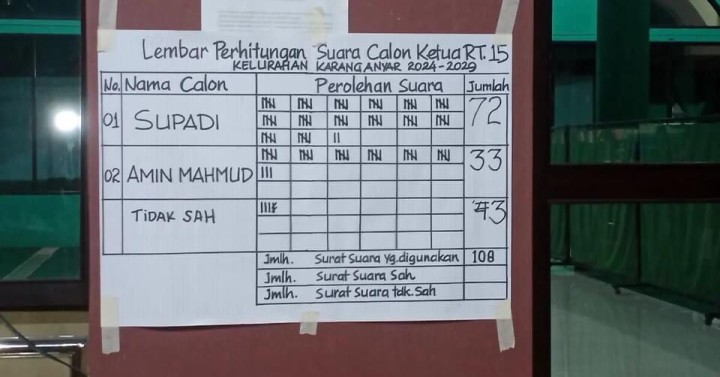 Lembar Perhitungan Suara Calon Ketua RT.15
KELURAHAN KARANGANYAR 2024-2029
No. Nama Calon Perolehan Suara Jumlah
01 SUPADI 72
02 AMIN MAHMUD 33
TIDAK SAH 3
Jmlh. Surat Suara yg.digunakan 108
Jmlh. Surat Suara Sah
Jmlh. Surat Suara tdk.Sah